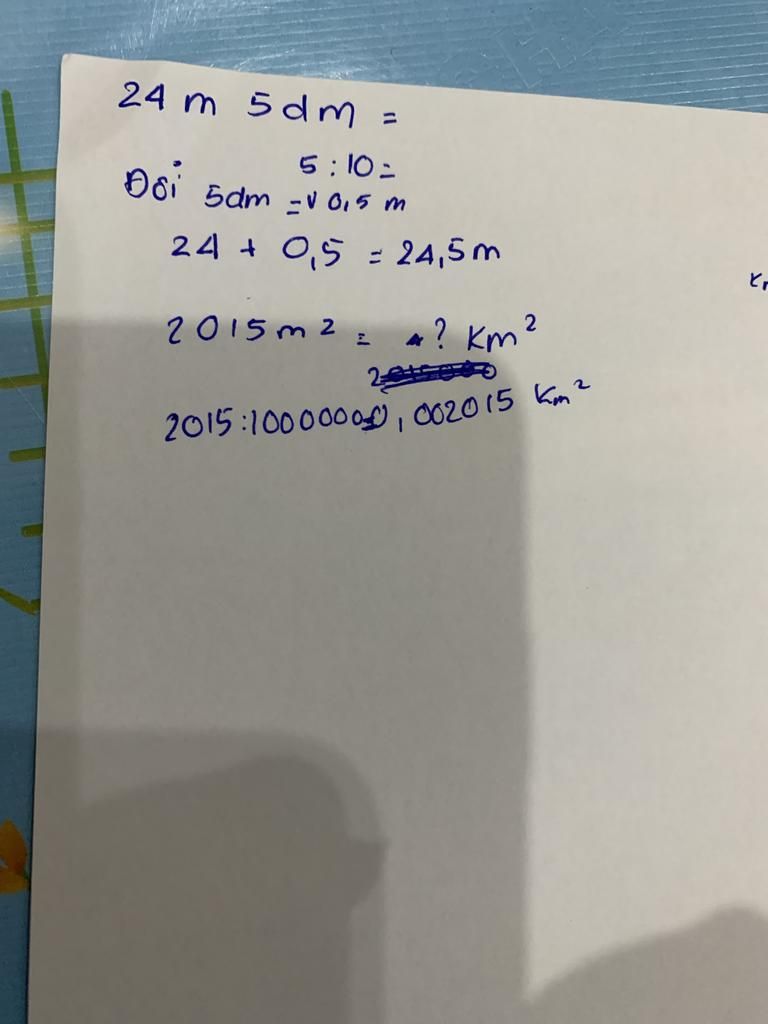 24 m 5dm =
5 : 10 =
Đổi 5dm = 0,5 m
24 + 0,5 = 24,5 m
2015 m² = ? Km²
2015 : 1000000 0,002015 Km²